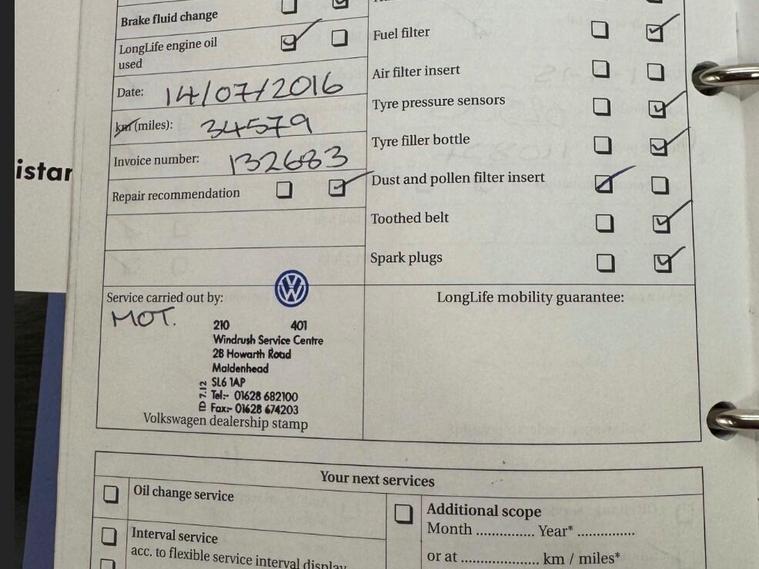 Brake fluid change
LongLife engine oil
used
Date: 14/07/2016
km (miles): 34579
Invoice number: 132683
Repair recommendation
Fuel filter
Air filter insert
Tyre pressure sensors
Tyre filler bottle
Dust and pollen filter insert
Toothed belt
Spark plugs
istar
Service carried out by:
MOT.
210 401
Windrush Service Centre
2B Howarth Road
Maidenhead
SL6 1AP
Tel:- 01628 682100
Fax:- 01628 674203
ID 7.12
Volkswagen dealership stamp
LongLife mobility guarantee:
Your next services
Oil change service
Interval service
acc. to flexible service interval display
Additional scope
Month .............. Year* ..............
or at .................... km / miles*